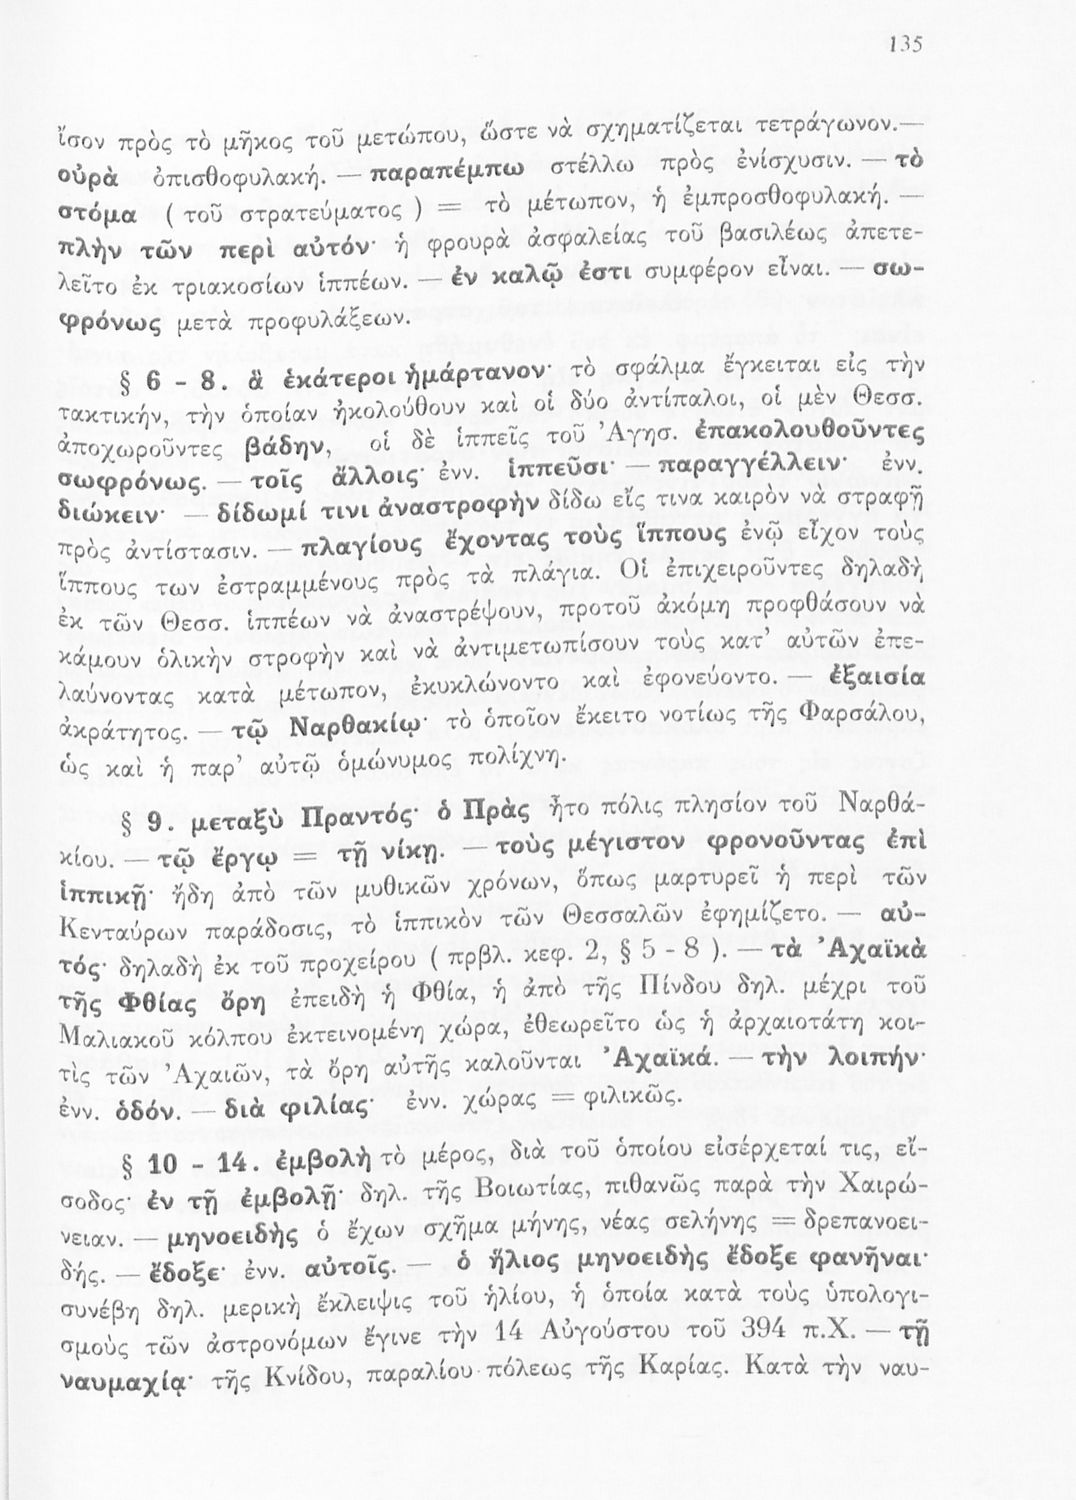 135
ἴσον πρὸς τὸ μῆκος τοῦ μετώπου, ὥστε νὰ σχηματίζεται τετράγωνον.—
οὐρὰ ὀπισθοφυλακή. — παραπέμπω στέλλω πρὸς ἐνίσχυσιν. — τὸ
στόμα ( τοῦ στρατεύματος ) = τὸ μέτωπον, ἡ ἐμπροσθοφυλακή. —
πλὴν τῶν περὶ αὐτόν· ἡ φρουρὰ ἀσφαλείας τοῦ βασιλέως ἀπετε-
λεῖτο ἐκ τριακοσίων ἱππέων. — ἐν καλῷ ἐστι συμφέρον εἶναι. — σω-
φρόνως μετὰ προφυλάξεων.
§ 6 - 8. ἃ ἑκάτεροι ἡμάρτανον· τὸ σφάλμα ἔγκειται εἰς τὴν
τακτικήν, τὴν ὁποίαν ἠκολούθουν καὶ οἱ δύο ἀντίπαλοι, οἱ μὲν Θεσσ.
ἀποχωροῦντες βάδην, οἱ δὲ ἱππεῖς τοῦ Ἀγησ. ἐπακολουθοῦντες
σωφρόνως. — τοῖς ἄλλοις· ἐνν. ἱππεῦσι· — παραγγέλλειν· ἐνν.
διώκειν· — δίδωμί τινι ἀναστροφὴν δίδω εἴς τινα καιρὸν νὰ στραφῇ
πρὸς ἀντίστασιν. — πλαγίους ἔχοντας τοὺς ἵππους ἐνῷ εἶχον τοὺς
ἵππους των ἐστραμμένους πρὸς τὰ πλάγια. Οἱ ἐπιχειροῦντες δηλαδὴ
ἐκ τῶν Θεσσ. ἱππέων νὰ ἀναστρέψουν, προτοῦ ἀκόμη προφθάσουν νὰ
κάμουν ὁλικὴν στροφὴν καὶ νὰ ἀντιμετωπίσουν τοὺς κατ’ αὐτῶν ἐπε-
λαύνοντας κατὰ μέτωπον, ἐκυκλώνοντο καὶ ἐφονεύοντο. — ἐξαισία
ἀκράτητος. — τῷ Ναρθακίῳ· τὸ ὁποῖον ἔκειτο νοτίως τῆς Φαρσάλου,
ὡς καὶ ἡ παρ’ αὐτῷ ὁμώνυμος πολίχνη.
§ 9. μεταξὺ Πραντός· ὁ Πρὰς ἦτο πόλις πλησίον τοῦ Ναρθα-
κίου. — τῷ ἔργῳ = τῇ νίκῃ. — τοὺς μέγιστον φρονοῦντας ἐπὶ
ἱππικῇ· ἤδη ἀπὸ τῶν μυθικῶν χρόνων, ὅπως μαρτυρεῖ ἡ περὶ τῶν
Κενταύρων παράδοσις, τὸ ἱππικὸν τῶν Θεσσαλῶν ἐφημίζετο. — αὐ-
τός· δηλαδὴ ἐκ τοῦ προχείρου ( πρβλ. κεφ. 2, § 5 - 8 ). — τὰ Ἀχαϊκὰ
τῆς Φθίας ὄρη ἐπειδὴ ἡ Φθία, ἡ ἀπὸ τῆς Πίνδου δηλ. μέχρι τοῦ
Μαλιακοῦ κόλπου ἐκτεινομένη χώρα, ἐθεωρεῖτο ὡς ἡ ἀρχαιοτάτη κοι-
τὶς τῶν Ἀχαιῶν, τὰ ὄρη αὐτῆς καλοῦνται Ἀχαϊκά. — τὴν λοιπήν·
ἐνν. ὁδόν. — διὰ φιλίας· ἐνν. χώρας = φιλικῶς.
§ 10 - 14. ἐμβολὴ τὸ μέρος, διὰ τοῦ ὁποίου εἰσέρχεταί τις, εἴ-
σοδος· ἐν τῇ ἐμβολῇ· δηλ. τῆς Βοιωτίας, πιθανῶς παρὰ τὴν Χαιρώ-
νειαν. — μηνοειδὴς ὁ ἔχων σχῆμα μήνης, νέας σελήνης = δρεπανοει-
δής. — ἔδοξε· ἐνν. αὐτοῖς. — ὁ ἥλιος μηνοειδὴς ἔδοξε φανῆναι·
συνέβη δηλ. μερικὴ ἔκλειψις τοῦ ἡλίου, ἡ ὁποία κατὰ τοὺς ὑπολογι-
σμοὺς τῶν ἀστρονόμων ἔγινε τὴν 14 Αὐγούστου τοῦ 394 π.Χ. — τῇ
ναυμαχίᾳ· τῆς Κνίδου, παραλίου πόλεως τῆς Καρίας. Κατὰ τὴν ναυ-